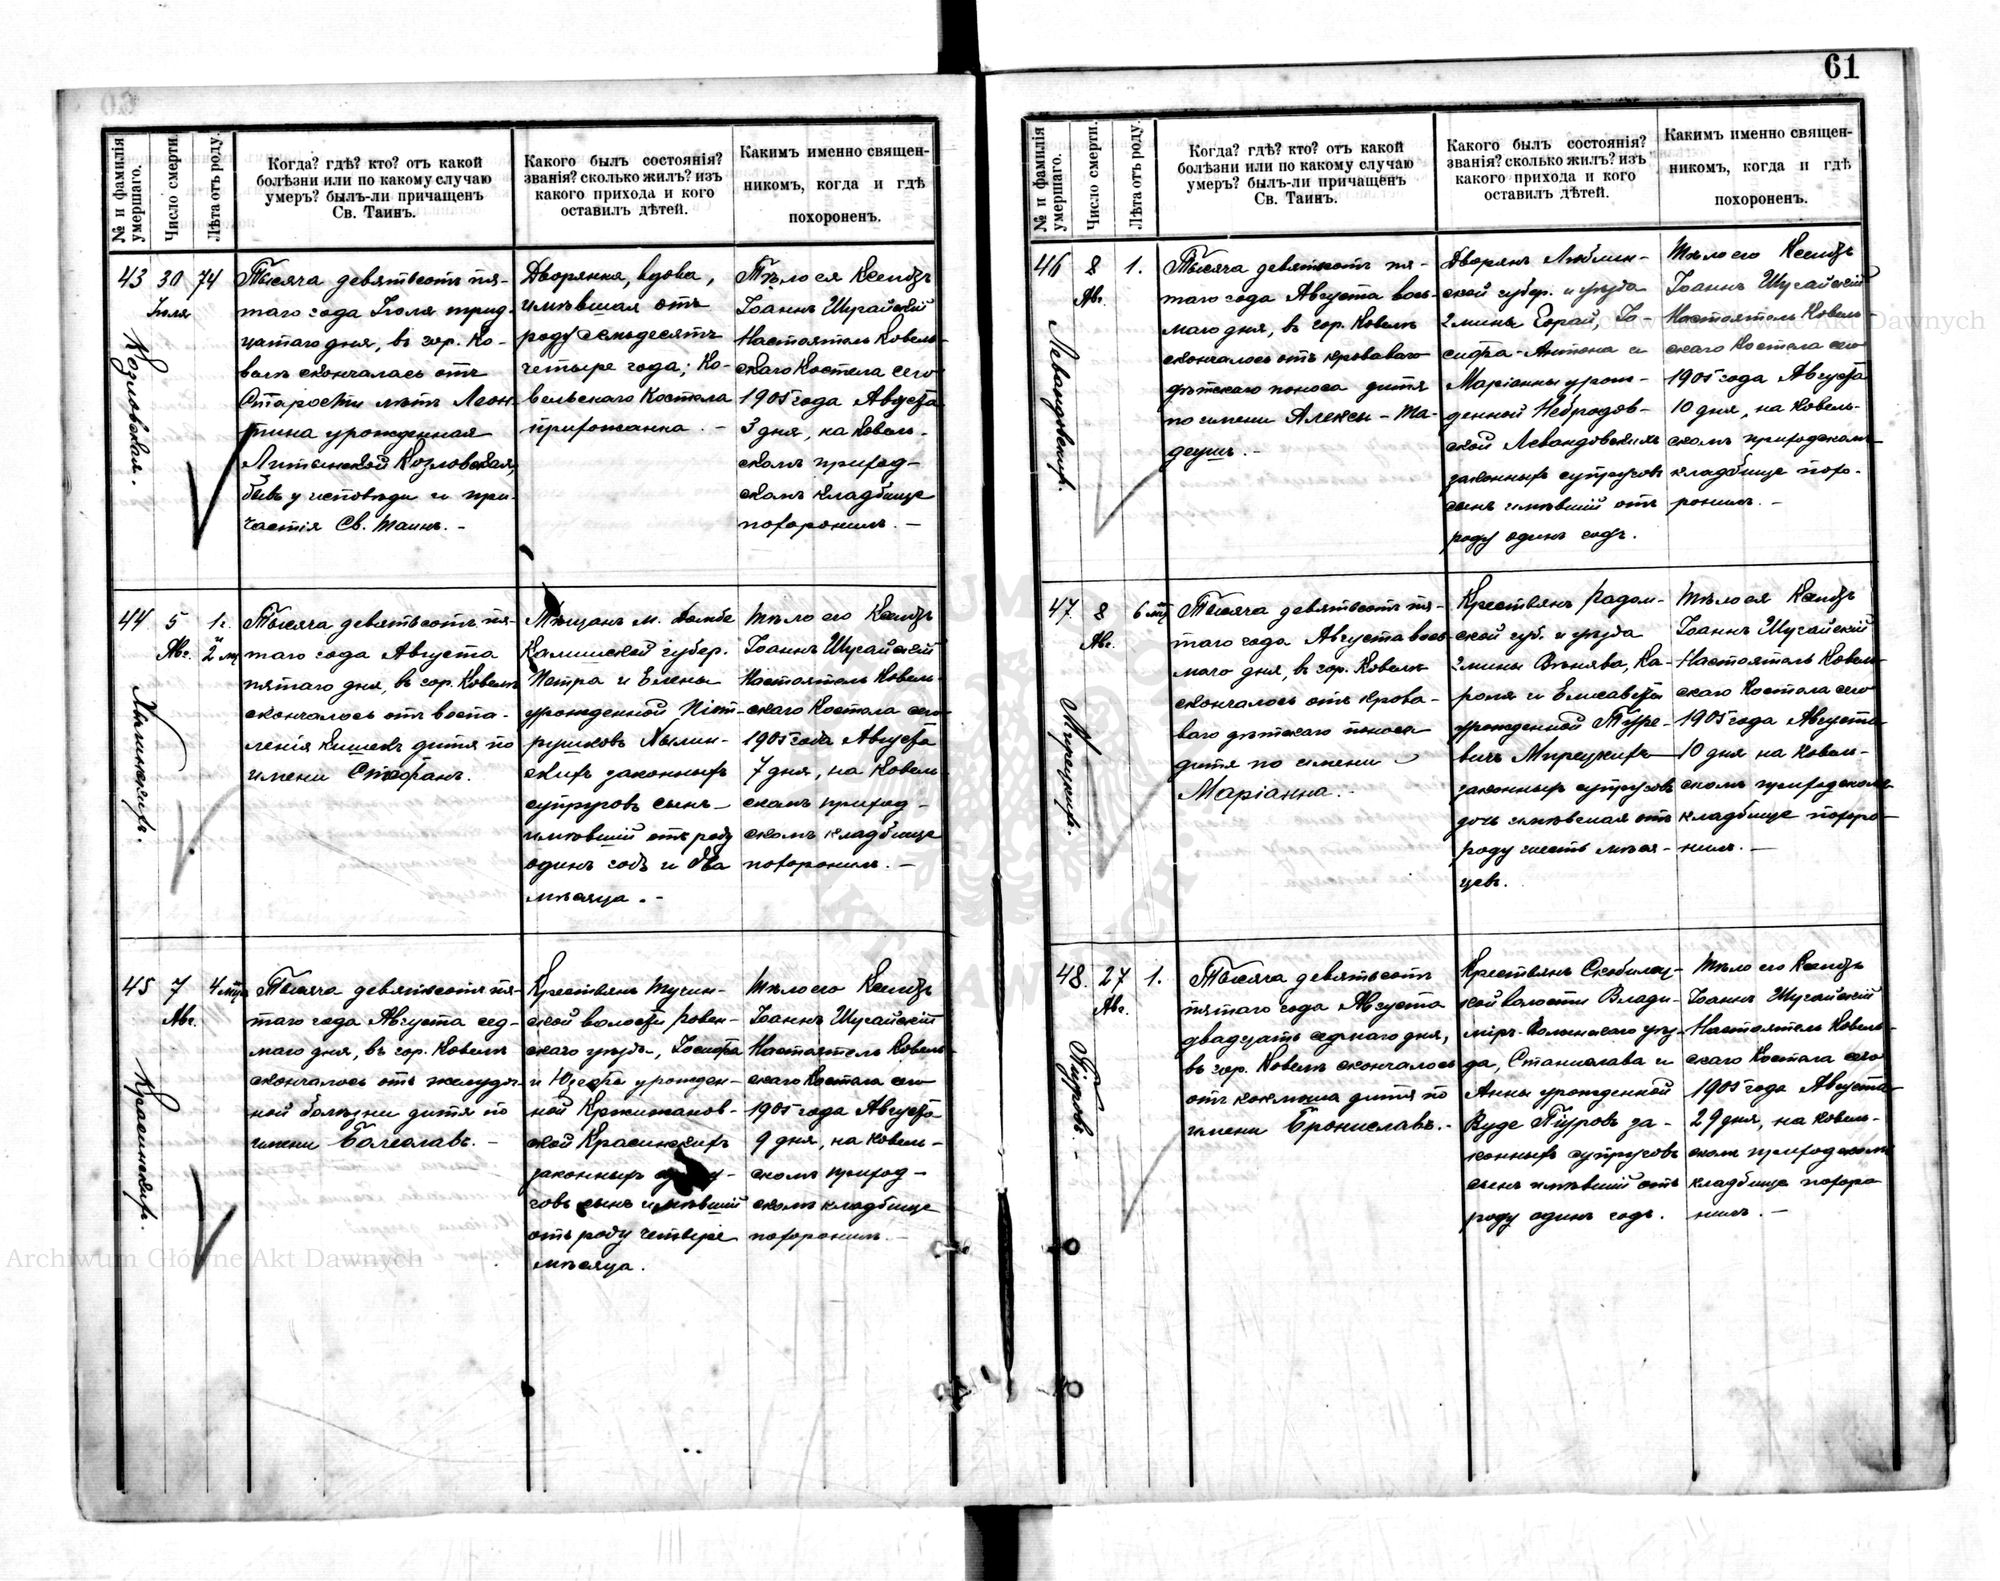 61
№ и фамилія умершаго.
Число смерти.
Лѣта отъ роду.
Когда? гдѣ? кто? отъ какой
болѣзни или по какому случаю
умеръ? былъ-ли причащенъ
Св. Таинъ.
Какого былъ состоянія?
званія? сколько жилъ? изъ
какого прихода и кого
оставилъ дѣтей.
Какимъ именно священ-
никомъ, когда и гдѣ
похороненъ.
43
Козловская.
30
Іюля
74
Тысяча девятьсотъ пя-
таго года Іюля трид-
цатаго дня, въ гор. Ко-
велѣ скончалась отъ
Старости лѣтъ Леон-
тина урожденная
Литынской Козловская,
бывъ у исповѣди и при-
частія Св. Таинъ. -
Дворянка, вдова,
имѣвшая отъ
роду семьдесятъ
четыре года; Ко-
вельскаго Костела
прихожанка. -
Тѣло ея Ксендзъ
Іоаннъ Шугайскій
Настоятель Ковель-
скаго Костела сего
1905 года Августа
3 дня, на Ковель-
скомъ приход-
скомъ кладбище
похоронилъ. -
44
Хылинскихъ.
5
Авг.
1 г.
и
2 м.
Тысяча девятьсотъ пя-
таго года Августа
пятаго дня, въ гор. Ковелѣ
скончалось отъ воспа-
ленія кишекъ дитя по
имени Стефанъ.
Мѣщанъ м. Домбе
Калишской губер.
Петра и Елены
урожденной Піет-
рушковъ Хылин-
скихъ законныхъ
супруговъ сынъ
имѣвшій отъ роду
одинъ годъ и два
мѣсяца. -
Тѣло его Ксендзъ
Іоаннъ Шугайскій
Настоятель Ковель-
скаго Костела сего
1905 года Августа
7 дня, на Ковель-
скомъ приход-
скомъ кладбище
похоронилъ. -
45
Красинскихъ.
7
Авг.
4 мѣс.
Тысяча девятьсотъ пя-
таго года Августа сед-
маго дня, въ гор. Ковелѣ
скончалось отъ желудоч-
ной болѣзни дитя по
имени Болеславъ. -
Крестьянъ Тучин-
ской волости Ровен-
скаго уѣзда, Іосифа
и Юзефы урожден-
ной Кржижанов-
ской Красинскихъ
законныхъ
говъ сынъ имѣвшій
отъ роду четыре
мѣсяца.
Тѣло его Ксендзъ
Іоаннъ Шугайскій
Настоятель Ковель-
скаго Костела сего
1905 года Августа
9 дня, на Ковель-
скомъ приход-
скомъ кладбище
похоронилъ. -
№ и фамилія умершаго.
Число смерти.
Лѣта отъ роду.
Когда? гдѣ? кто? отъ какой
болѣзни или по какому случаю
умеръ? былъ-ли причащенъ
Св. Таинъ.
Какого былъ состоянія?
званія? сколько жилъ? изъ
какого прихода и кого
оставилъ дѣтей.
Какимъ именно священ-
никомъ, когда и гдѣ
похороненъ.
46
Левандовскихъ.
8
Авг.
1.
Тысяча девятьсотъ пя-
таго года Августа вось-
маго дня, въ гор. Ковелѣ
скончалось отъ кроваваго
дѣтскаго поноса дитя
по имени Алексы-Та-
деушъ. -
Дворянъ Люблин-
ской губер. и уѣзда
Гмины Іо-
сифа-Антона и
Маріанны урож-
денной
ской Левандовскихъ
законныхъ супруговъ
сынъ имѣвшій отъ
роду одинъ годъ.
Тѣло его Ксендзъ
Іоаннъ Шугайскій
Настоятель Ковель-
скаго Костела сего
1905 года Августа
10 дня, на Ковель-
скомъ приходскомъ
кладбище похо-
ронилъ. -
47.
Мирецкихъ.
8
Авг.
6 мѣс.
Тысяча девятьсотъ пя-
таго года Августа вось-
маго дня, въ гор. Ковелѣ
скончалось отъ крова-
ваго дѣтскаго поноса
дитя по имени
Маріанна. -
Крестьянъ Радом-
ской губ. и уѣзда
Гмины Вѣнява, Ка-
роля и Елисаветы
урожденной Туре-
вичъ Мирецкихъ
законныхъ супруговъ
дочь имѣвшая отъ
роду шесть мѣся-
цевъ.
Тѣло ея Ксендзъ
Іоаннъ Шугайскій
Настоятель Ковель-
скаго Костела сего
1905 года Августа
10 дня на Ковель-
скомъ приходскомъ
кладбище похоро-
нилъ. -
48.
Піуровъ. -
27
Авг.
1.
Тысяча девятьсотъ
пятаго года Августа
двадцать седмаго дня,
въ гор. Ковелѣ скончалось
отъ коклюша дитя по
имени Брониславъ. -
Крестьянъ Скобелец-
кой волости Влади-
міръ-Волынскаго уѣз-
да, Станислава и
Анны урожденной
Вуде Піуровъ за-
конныхъ супруговъ
сынъ имѣвшій отъ
роду одинъ годъ.
Тѣло его Ксендзъ
Іоаннъ Шугайскій
Настоятель Ковель-
скаго Костела сего
1905 года Августа
29 дня, на Ковель-
скомъ приходскомъ
кладбище похоро
нилъ. -
Archiwum Główne Akt Dawnych
Archiwum Główne Akt Dawnych